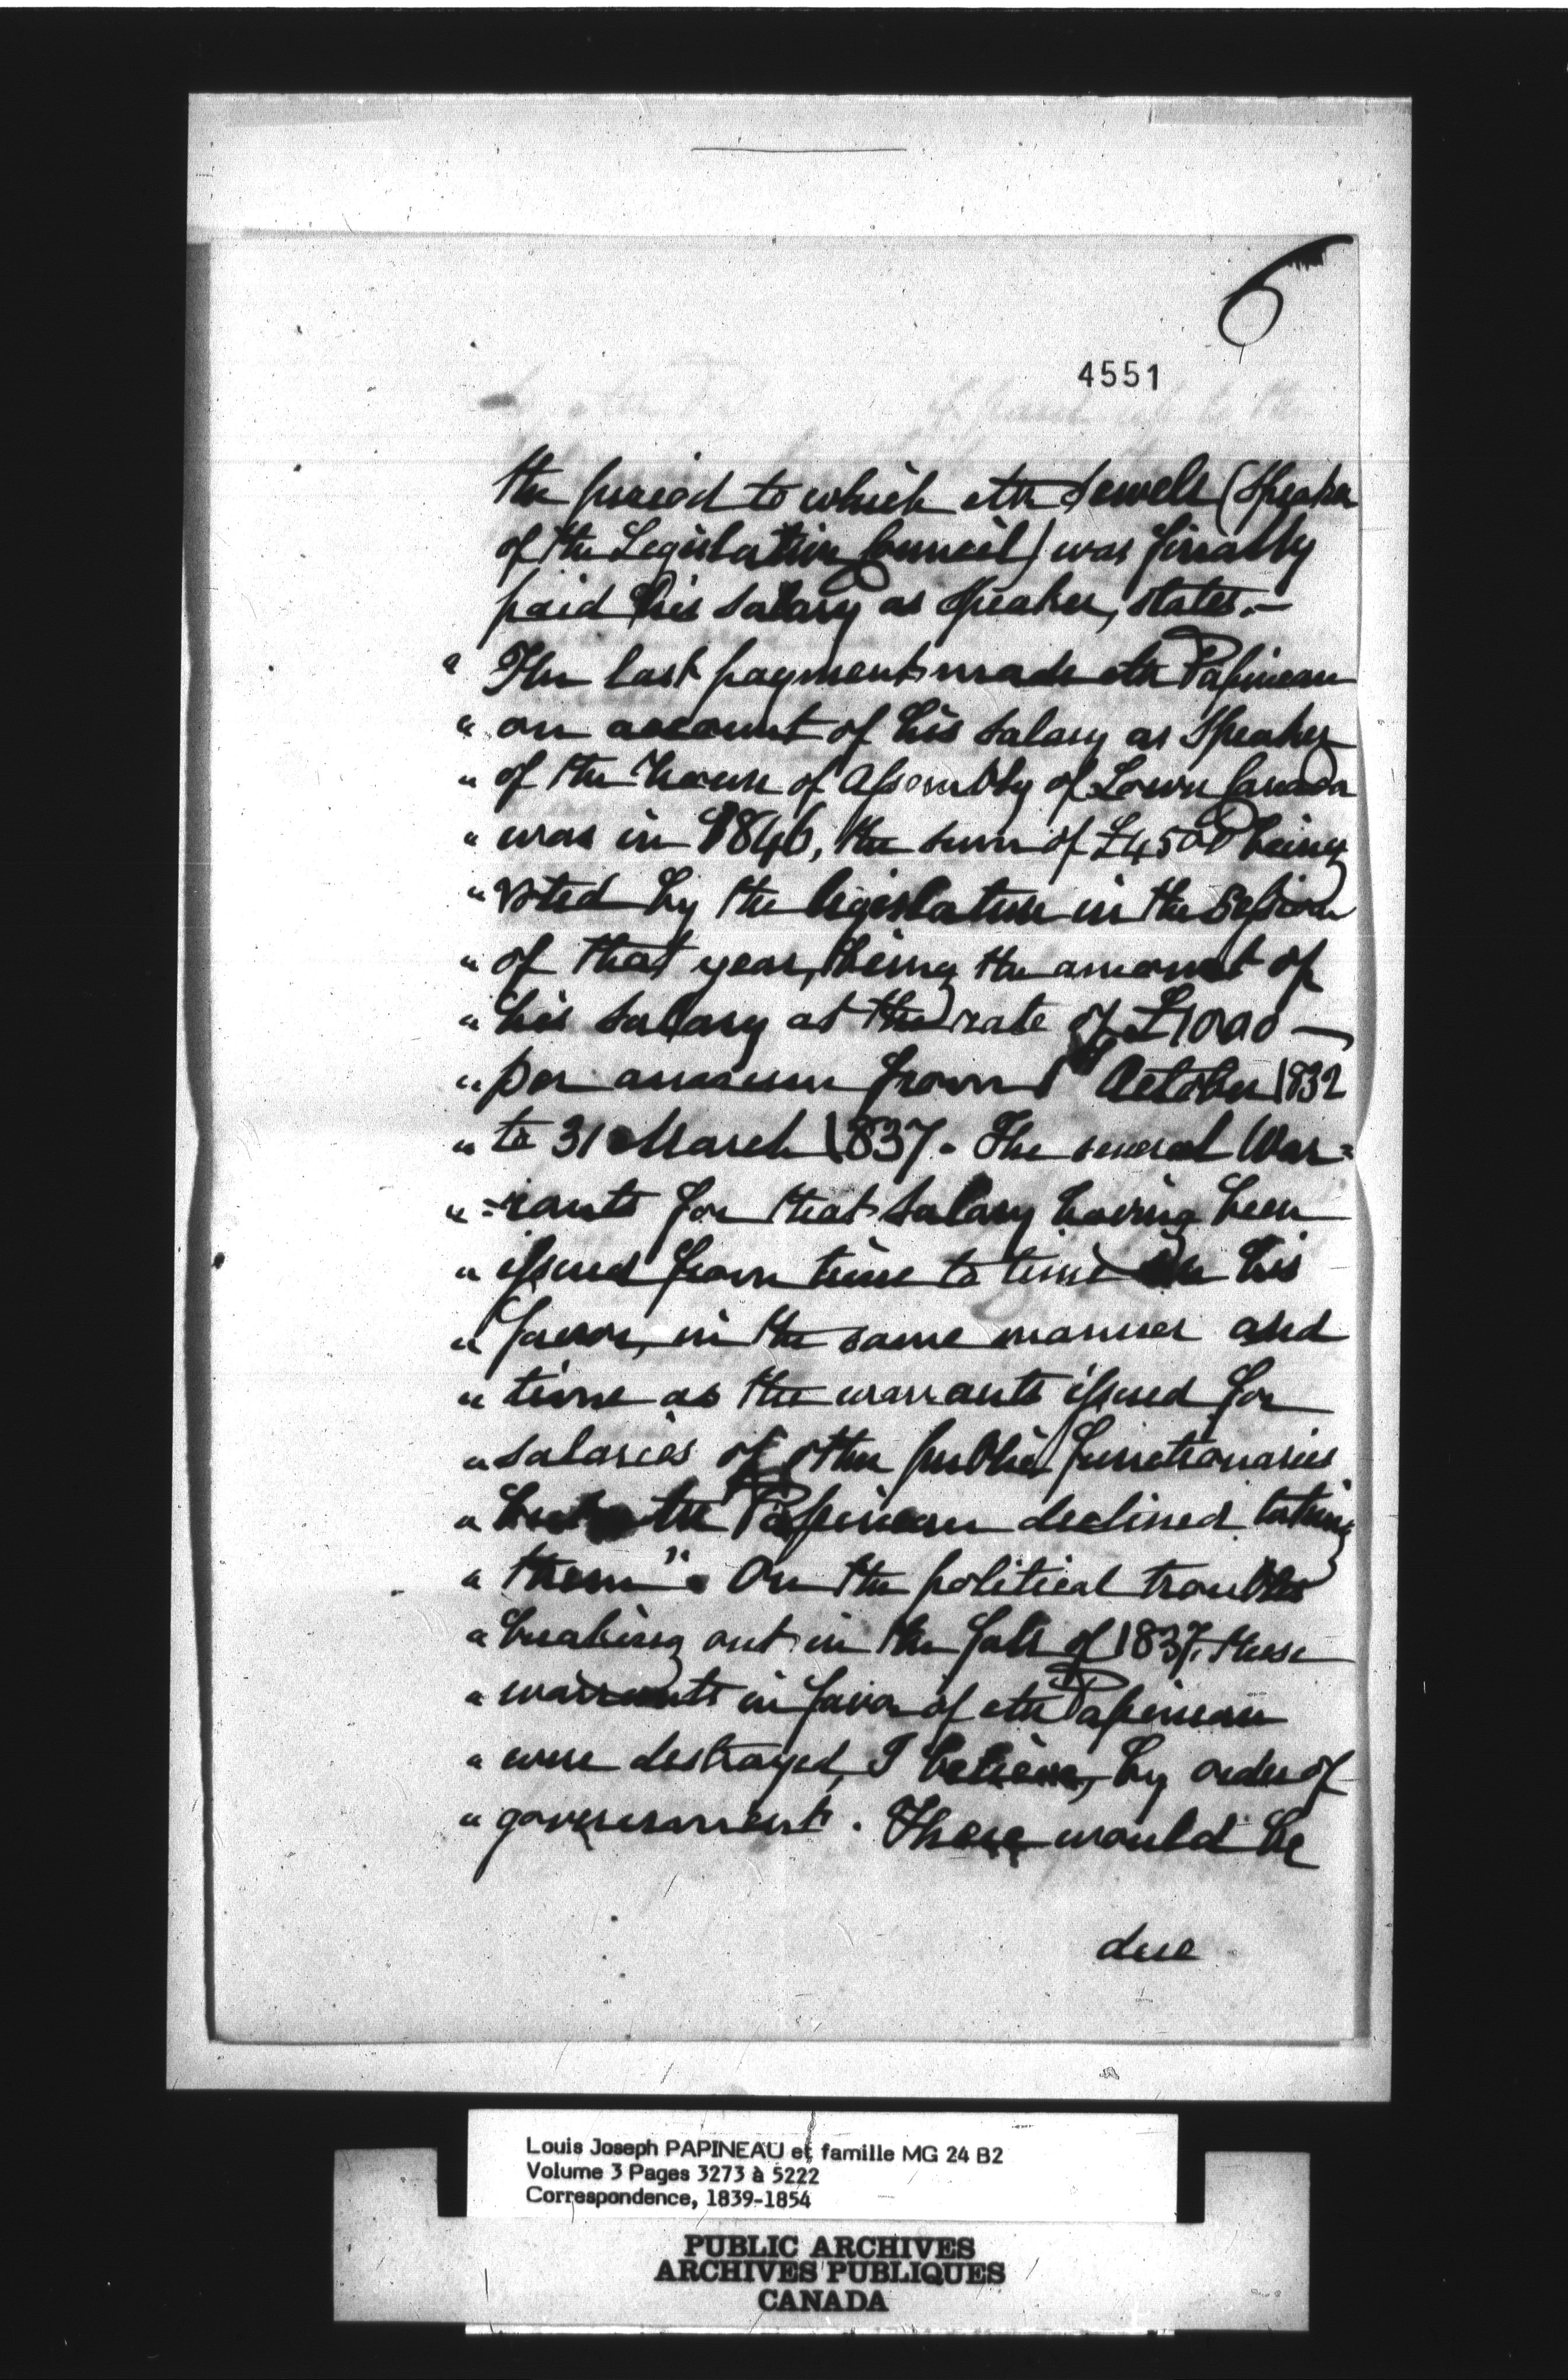 6
4551
the period to which Mr Sewell (Speaker
of the Legislative Council) was finally
paid his salary as Speaker, states.—
" The last payment made Mr Papineau
" on account of his salary as Speaker
" of the house of Assembly of Lower Canada
" was in 1846, the sum of £4500 being
" voted by the legislature in the Session
" of that year, being the amount of
" his salary at the rate of £1000 —
" per annum from 1st October 1832
" to 31 March 1837. The several War=
" =rants for that salary having been
" issued from time to time in his
" favor, in the same manner and
" time as the warrants issued for
" salaries of other public functionaries
" but Mr Papineau declined taking
" them". On the political troubles
" breaking out in the fall of 1837, these
" warrants in favor of Mr Papineau
" were destroyed, I believe, by order of
" government. There would be
due
Louis Joseph PAPINEAU et famille MG 24 B2
Volume 3 Pages 3273 à 5222
Correspondence, 1839-1854
PUBLIC ARCHIVES
ARCHIVES PUBLIQUES
CANADA